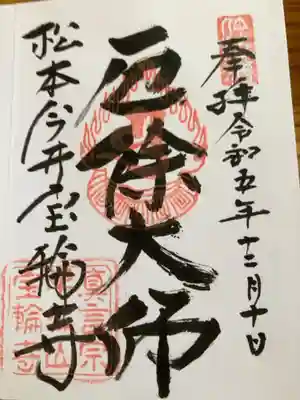 奉拝 令和五年十二月十日
厄除大師
松本今井宝輪寺
真言宗
山
宝輪寺